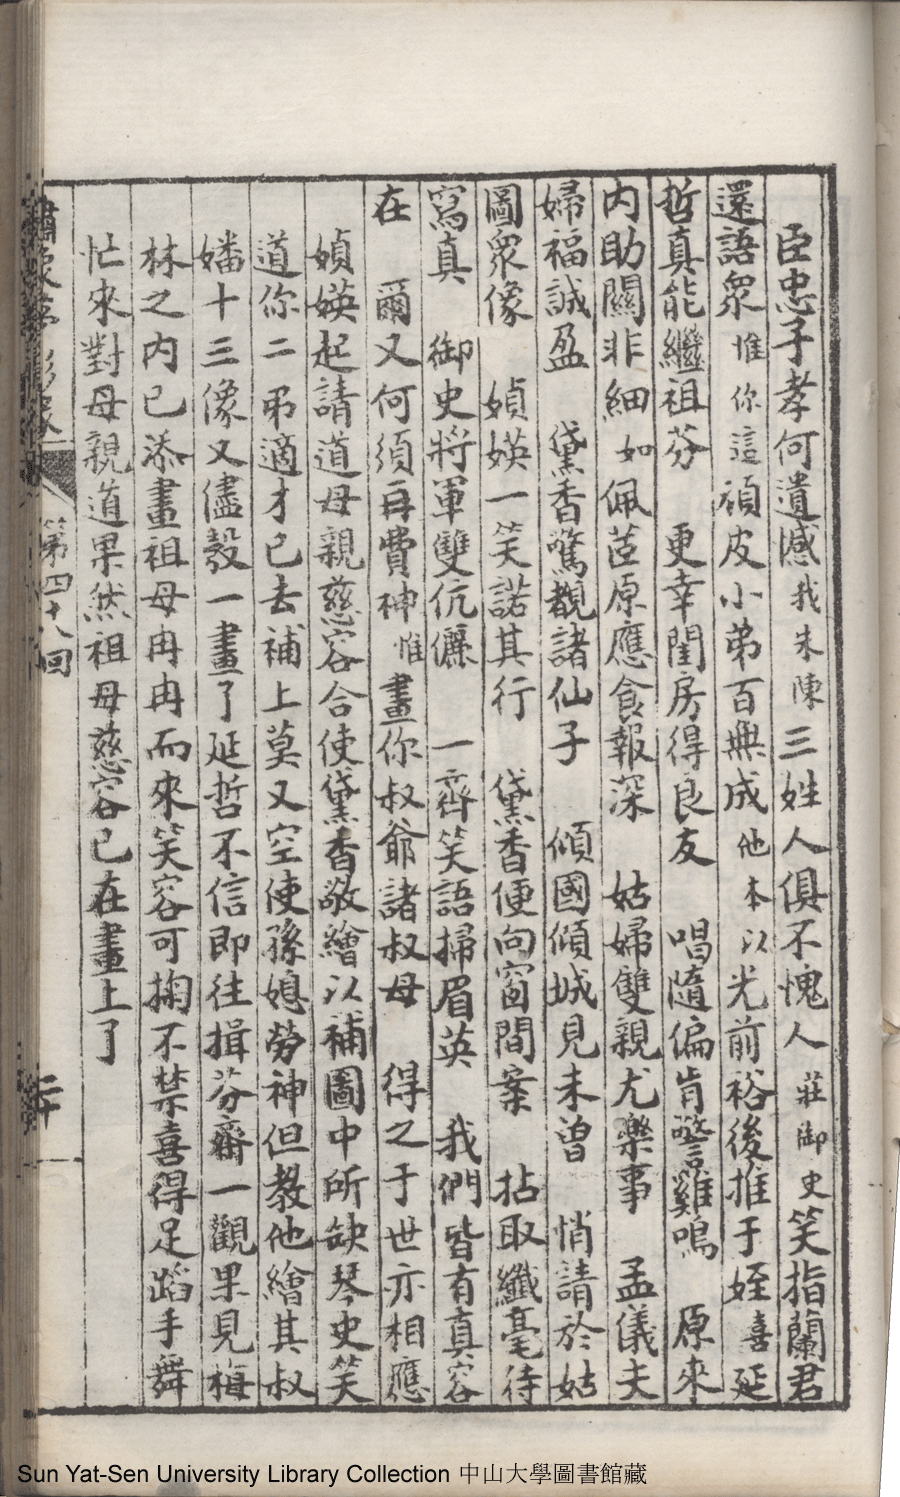 臣忠子孝何遺憾我朱陳三姓人俱不愧人莊御史笑指蘭君
還語衆惟你這頑皮小弟百無成他本以光前裕後推于姪喜延
哲真能繼祖芬 更幸閨房得良友 唱隨偏肯警雞鳴 原來
內助關非細如佩茝原應食報深 姑婦雙親尤樂事 孟儀夫
婦福誠盈 黛香驚覩諸仙子 傾國傾城見未曾 悄請於姑
圖衆像 媜媖一笑諾其行 黛香便向窗間案 拈取纖毫待
寫真 御史將軍雙伉儷 一齊笑語掃眉英 我們皆有真容
在 爾又何須再費神惟畫你叔爺諸叔母 得之于世亦相應
媜媖起請道母親慈容合使黛香敬繪以補圖中所缺琴史笑
道你二弟適才已去補上莫又空使孫媳勞神但教他繪其叔
嬸十三像又儘彀一畫了延哲不信即往揖芬齋一觀果見梅
林之內已添畫祖母冉冉而來笑容可掬不禁喜得足蹈手舞
忙來對母親道果然祖母慈容已在畫上了
第四十八回
二十
Sun Yat-Sen University Library Collection 中山大學圖書館藏